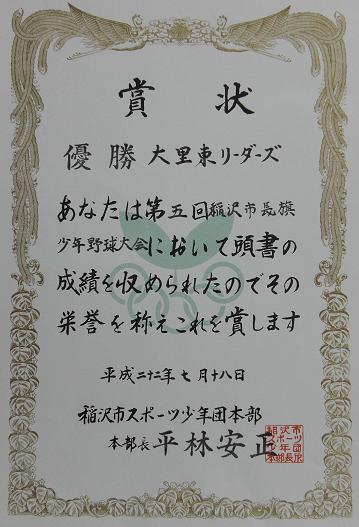 賞状
優勝 大里東リーダーズ
あなたは第五回稲沢市長旗
少年野球大会において頭書の
成績を収められたのでその
栄誉を称えこれを賞します
平成二十二年七月十八日
稲沢市スポーツ少年団本部
本部長 平林安正
稲沢市
スポーツ
少年団
本部長印